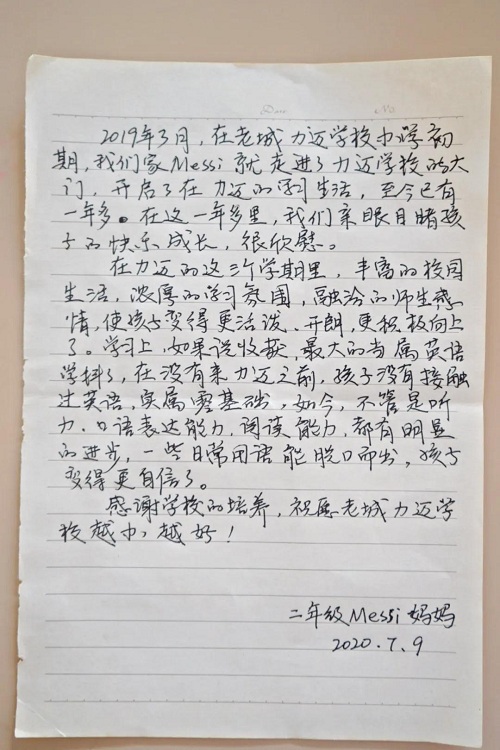 Date No.
2019年3月，在老城力迈学校办学初
期，我们家Messi就走进了力迈学校的大
门，开启了在力迈的学习生活，至今已有
一年多。在这一年多里，我们亲眼目睹孩
子的快乐成长，很欣慰。
在力迈的这三个学期里，丰富的校园
生活，浓厚的学习氛围，融洽的师生感
情，使孩子变得更活泼、开朗，更积极向上
了。学习上，如果说收获，最大的当属英语
学科了，在没有来力迈之前，孩子没有接触
过英语，实属零基础，如今，不管是听
力、口语表达能力，阅读能力，都有明显
的进步，一些日常用语能脱口而出，孩子
变得更自信了。
感谢学校的培养，祝愿老城力迈学
校越办越好！
二年级Messi妈妈
2020.7.9